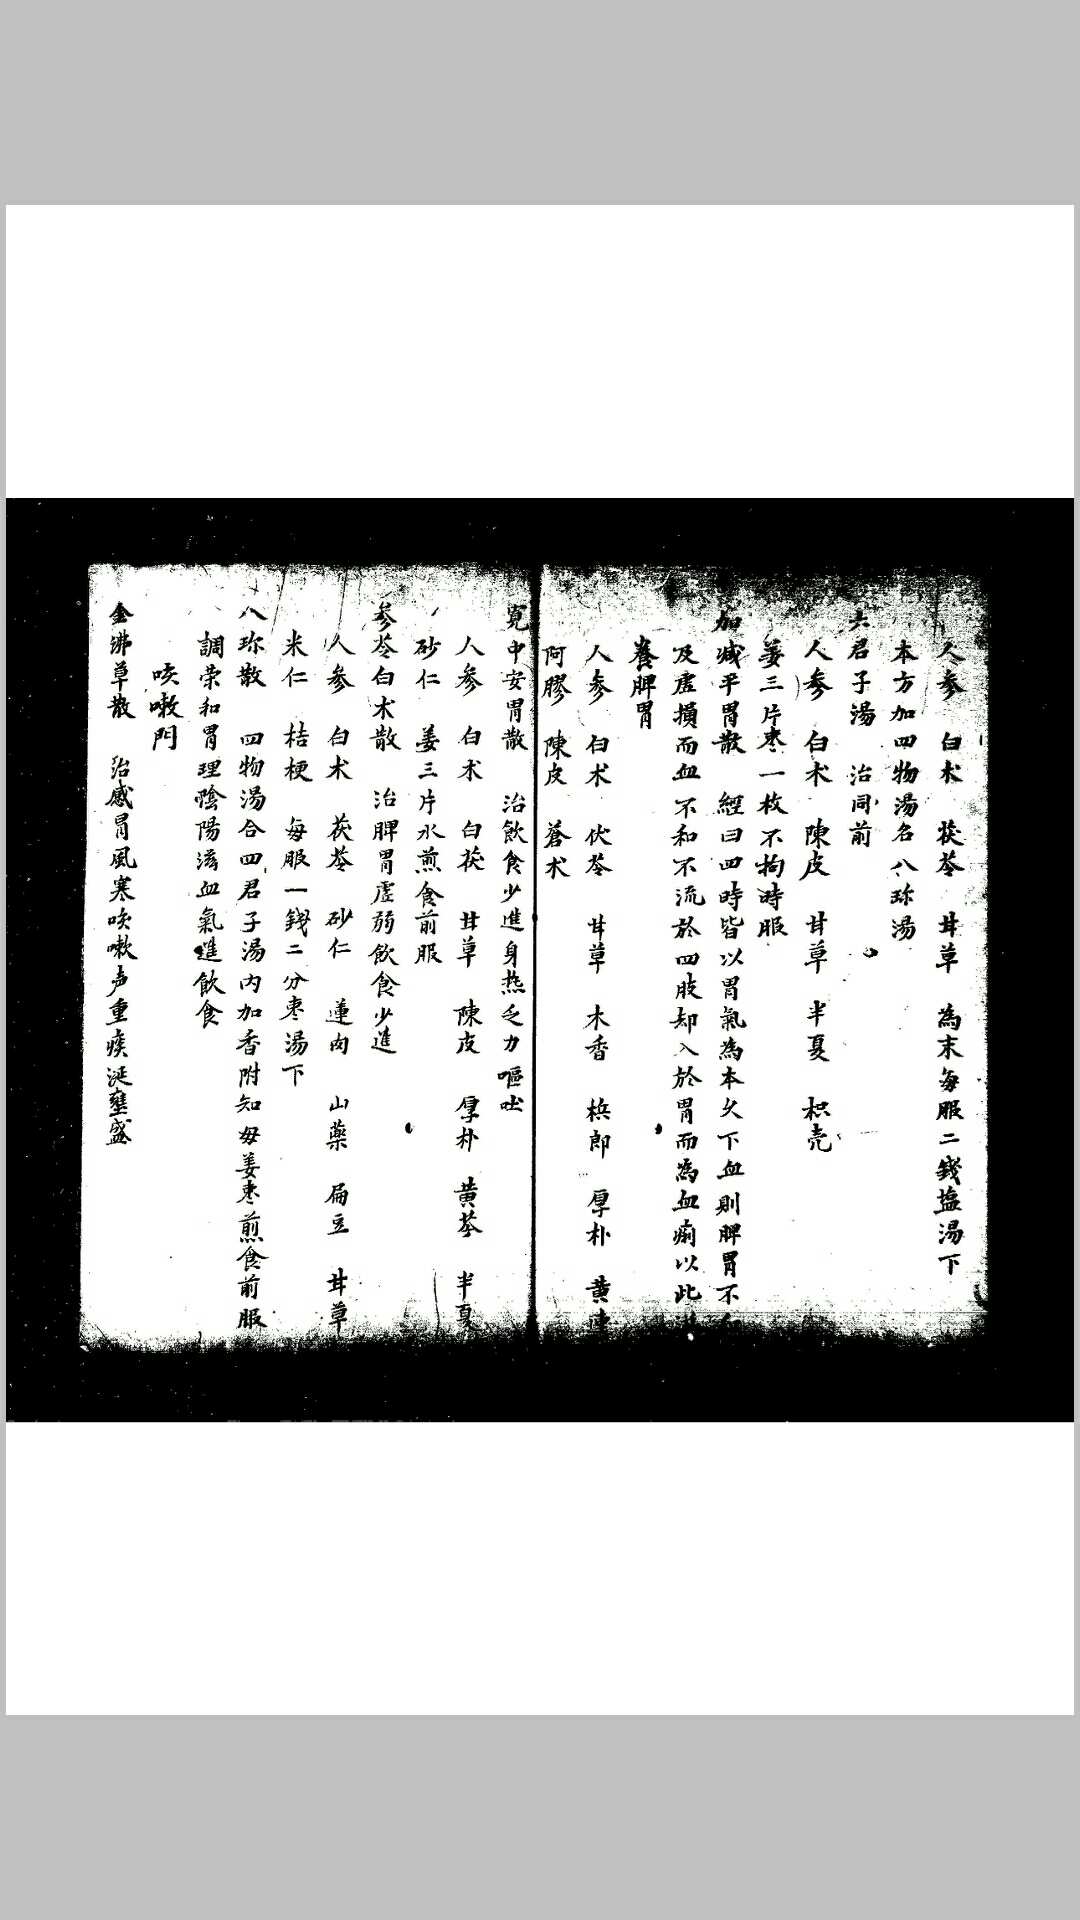 人参　白术　茯苓　甘草　為末每服二錢塩湯下
本方加四物湯名八珎湯
六君子湯　治同前
人参　白术　陳皮　甘草　半夏　枳壳
姜三片枣一枚不拘時服
加减平胃散　經曰四時皆以胃氣為本久下血則脾胃不和
及虚損而血不和不流於四肢却入於胃而為血痢以此
養脾胃
人参　白术　伏苓　甘草　木香　梹郎　厚朴　黄連
阿膠　陳皮　蒼术
寛中安胃散　治飲食少進身热乏力嘔吐
人参　白术　白茯　甘草　陳皮　厚朴　黄芩　半夏
砂仁　姜三片水煎食前服
参苓白术散　治脾胃虚弱飲食少進
人参　白术　茯苓　砂仁　蓮肉　山藥　扁豆　甘草
米仁　桔梗　每服一錢二分枣湯下
八珎散　四物湯合四君子湯内加香附知母姜枣煎食前服
調荣和胃理陰陽滋血氣進飲食
咳嗽門
金沸草散　治感冒風寒咳嗽声重痰涎壅盛